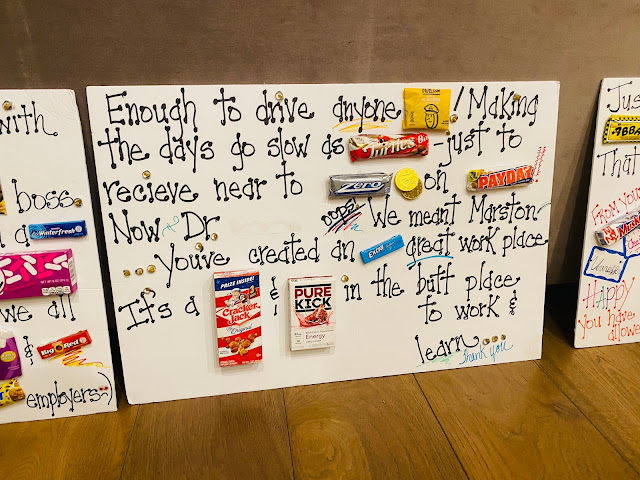 with
boss
a Winterfresh
we all
& Big Red
employers
Enough to drive anyone / Making
the days go slow as Turtles - just to
recieve near to ZERO on PAYDAY
Now Dr. OOPS We meant Marston-
youve created an Extra great work place
It's a PRIZE INSIDE! Cracker Jack Original & PURE KICK Energy in the butt place
to work &
learn Thank you
Jus
ABBA
That
FROM YOU
HAPPY
you have
allowe